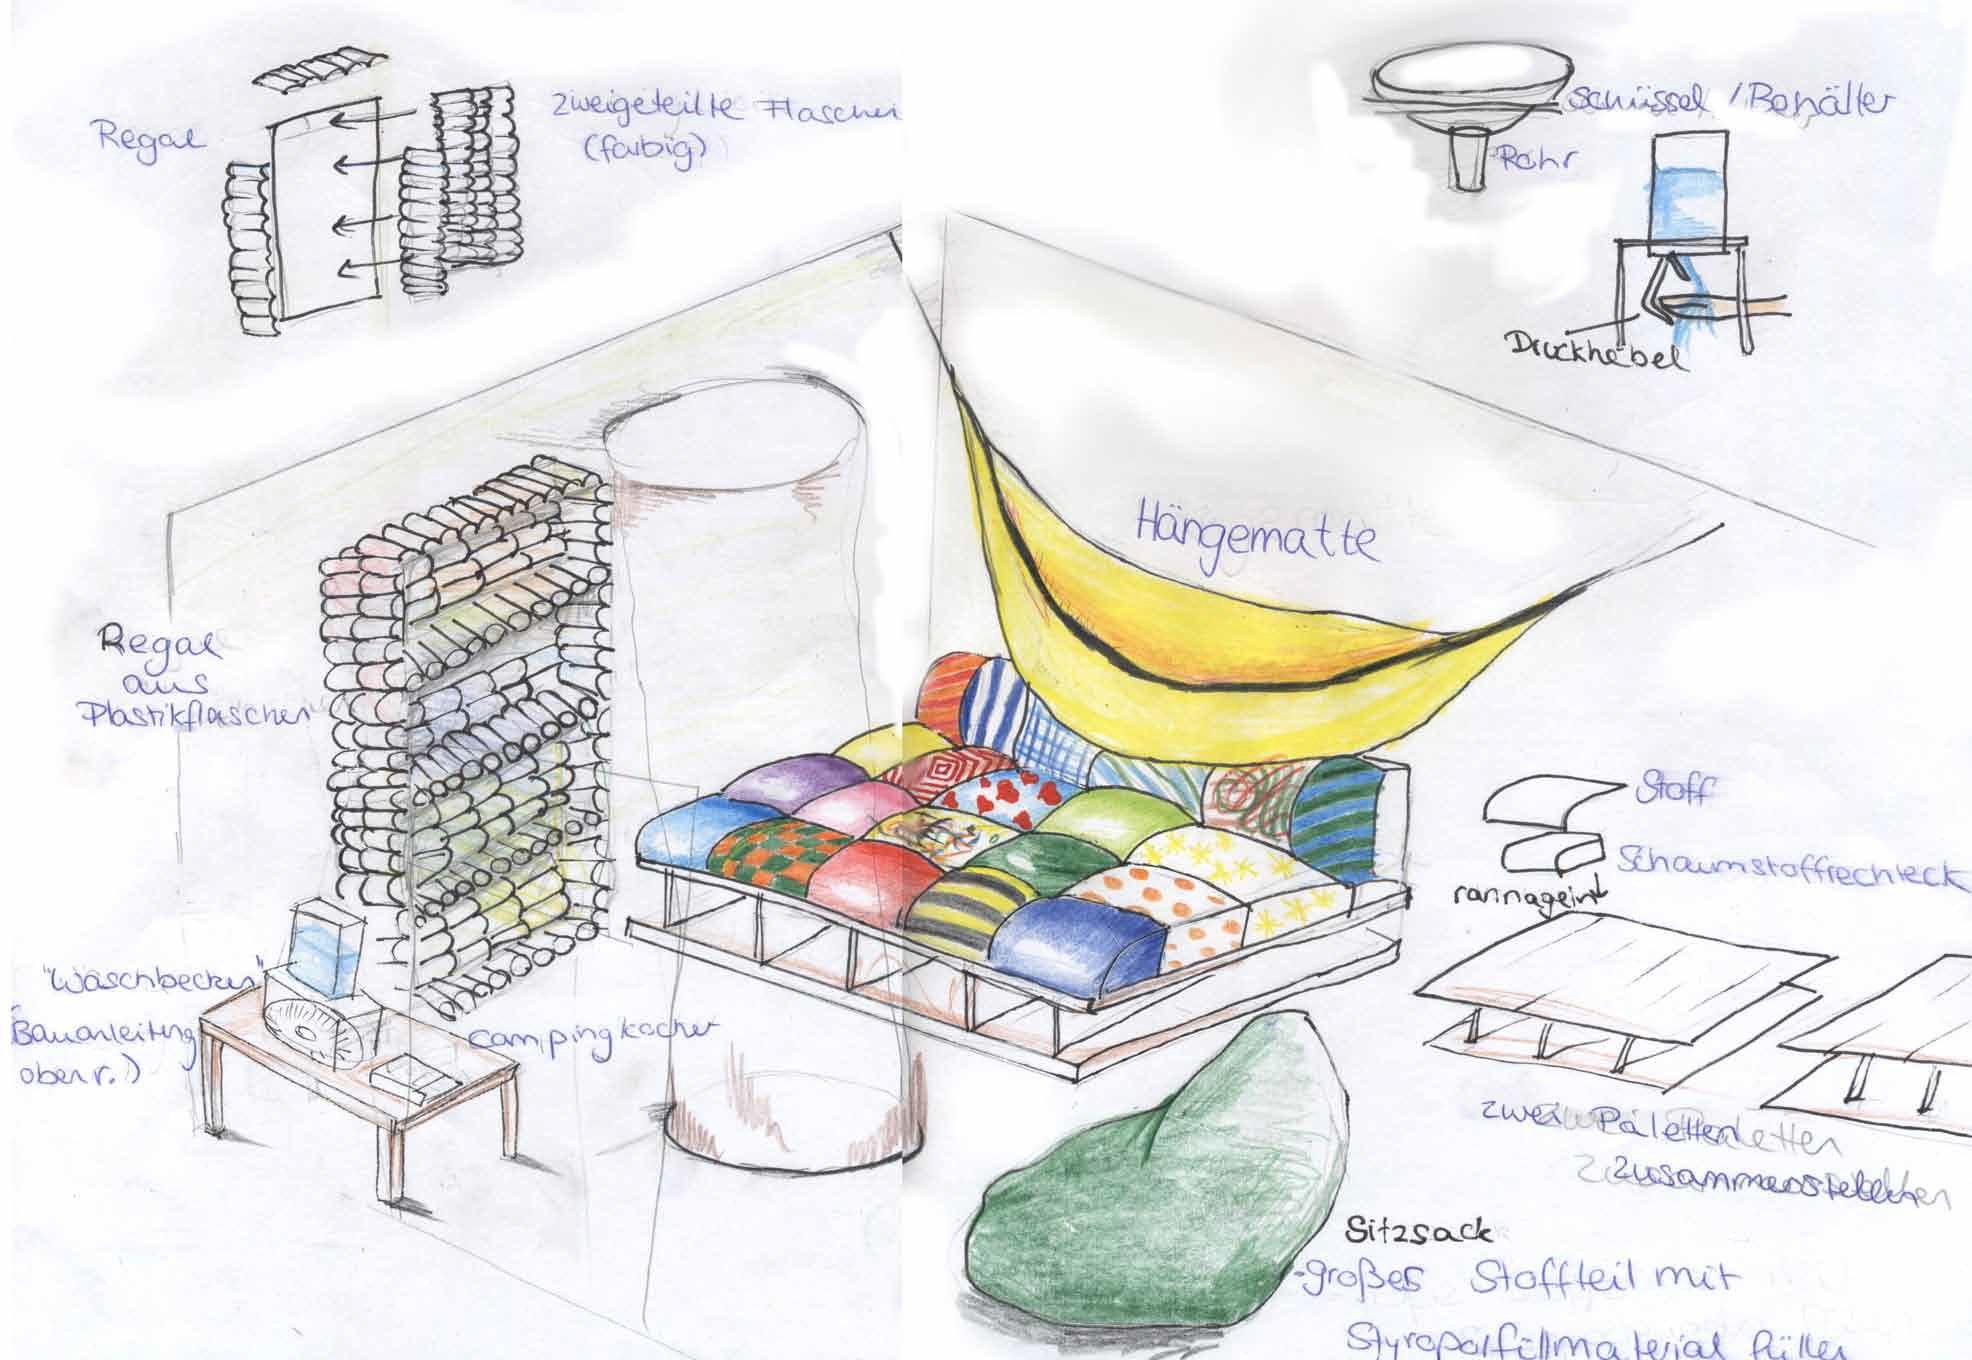 Regal
zweigeteilte Flaschen
(farbig)
Schüssel / Behälter
Rohr
Druckhebel
Hängematte
Regal
aus
Plastikflaschen
Stoff
Schaumstoffrechteck
"Waschbecken"
(Bauanleitung
oben r.)
Campingkocher
zwei Paletten
zusammenstellen
Sitzsack
-großes Stoffteil mit
Styroporfüllmaterial füllen